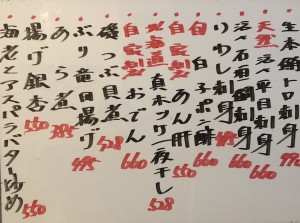 生本鮪トロ刺身
天然活〆平目刺身 660
活〆石垣鯛刺身 660
いわし刺身 550
白子ポン酢 660
自家製あん肝 660
北海道真ホッケ一夜干し 528
自家製おでん 660
磯つぶ貝煮 528
ぶり竜田揚げ 495
あら煮 385
揚げ銀杏 550
海老とアスパラバター炒め 550